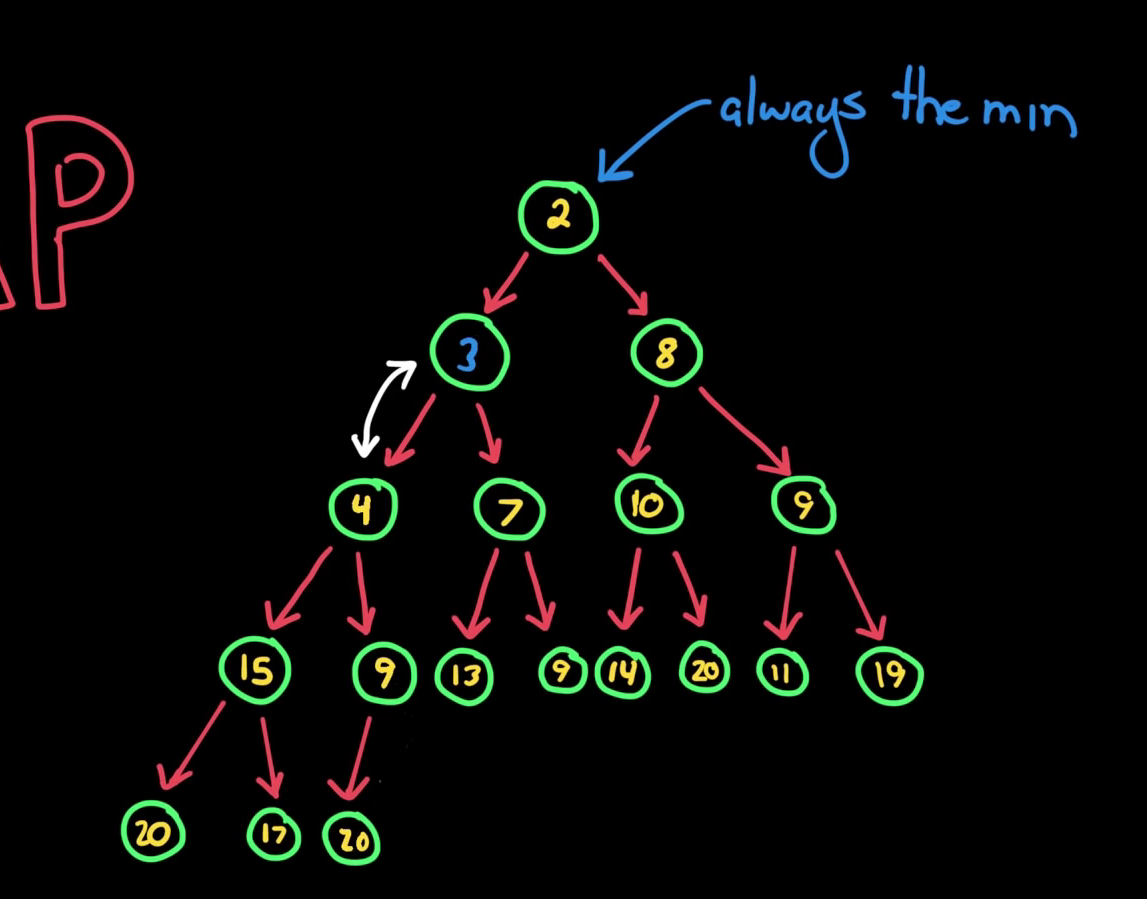 always the min
AP
2
3 8
4 7 10 9
15 9 13 9 14 20 11 19
20 17 20